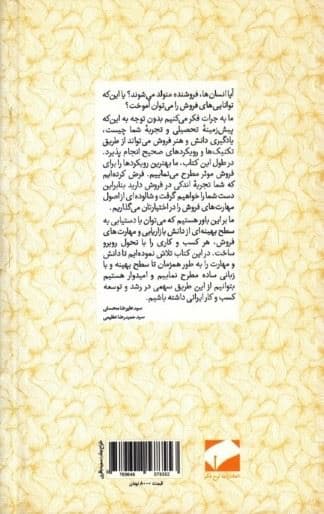 آیا انسان‌ها، فروشنده متولد می‌شوند؟ یا این‌که
توانایی‌های فروش را می‌توان آموخت؟
ما به جرات فکر می‌کنیم بدون توجه به این‌که
پیش‌زمینهٔ تحصیلی و تجربهٔ شما چیست،
یادگیری دانش و هنر فروش می‌تواند از طریق
تکنیک‌ها و رویکردهای صحیح انجام پذیرد.
در طول این کتاب، ما بهترین رویکردها را برای
فروش موثر مطرح می‌نماییم. فرض کرده‌ایم
که شما تجربهٔ اندکی در فروش دارید بنابراین
دست شما را خواهیم گرفت و شالوده‌ای از اصول
مهارت‌های فروش را در اختیارتان می‌گذاریم.
ما بر این باور هستیم که می‌توان با دستیابی به
سطح بهینه‌ای از دانش بازاریابی و مهارت‌های
فروش، هر کسب و کاری را با تحول روبرو
ساخت. در این کتاب تلاش نموده‌ایم تا دانش
و مهارت را به طور همزمان تا سطح بهینه و با
زبانی ساده مطرح نماییم و امیدوار هستیم
بتوانیم از این طریق سهمی در رشد و توسعه
کسب و کار ایرانی داشته باشیم.
سید علیرضا محسنی
سید حمیدرضا عظیمی
قیمت: ۸۰۰۰ تومان